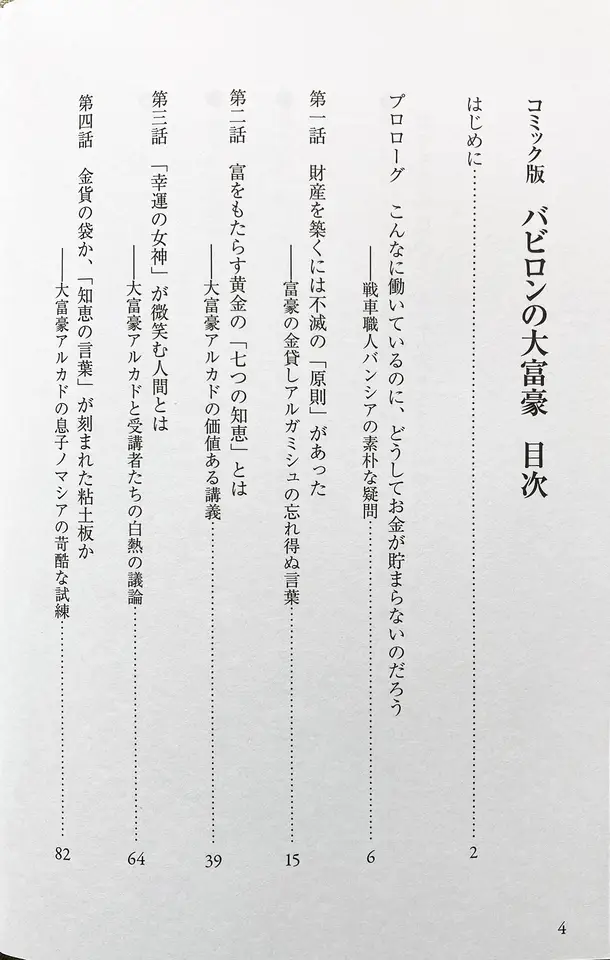 コミック版　バビロンの大富豪　目次
はじめに……………………………2
プロローグ　こんなに働いているのに、どうしてお金が貯まらないのだろう
――戦車職人バンシアの素朴な疑問……………………………6
第一話　財産を築くには不滅の「原則」があった
――富豪の金貸しアルガミシュの忘れ得ぬ言葉……………………………15
第二話　富をもたらす黄金の「七つの知恵」とは
――大富豪アルカドの価値ある講義……………………………39
第三話　「幸運の女神」が微笑む人間とは
――大富豪アルカドと受講者たちの白熱の議論……………………………64
第四話　金貨の袋か、「知恵の言葉」が刻まれた粘土板か
――大富豪アルカドの息子ノマシアの苛酷な試練……………………………82
4